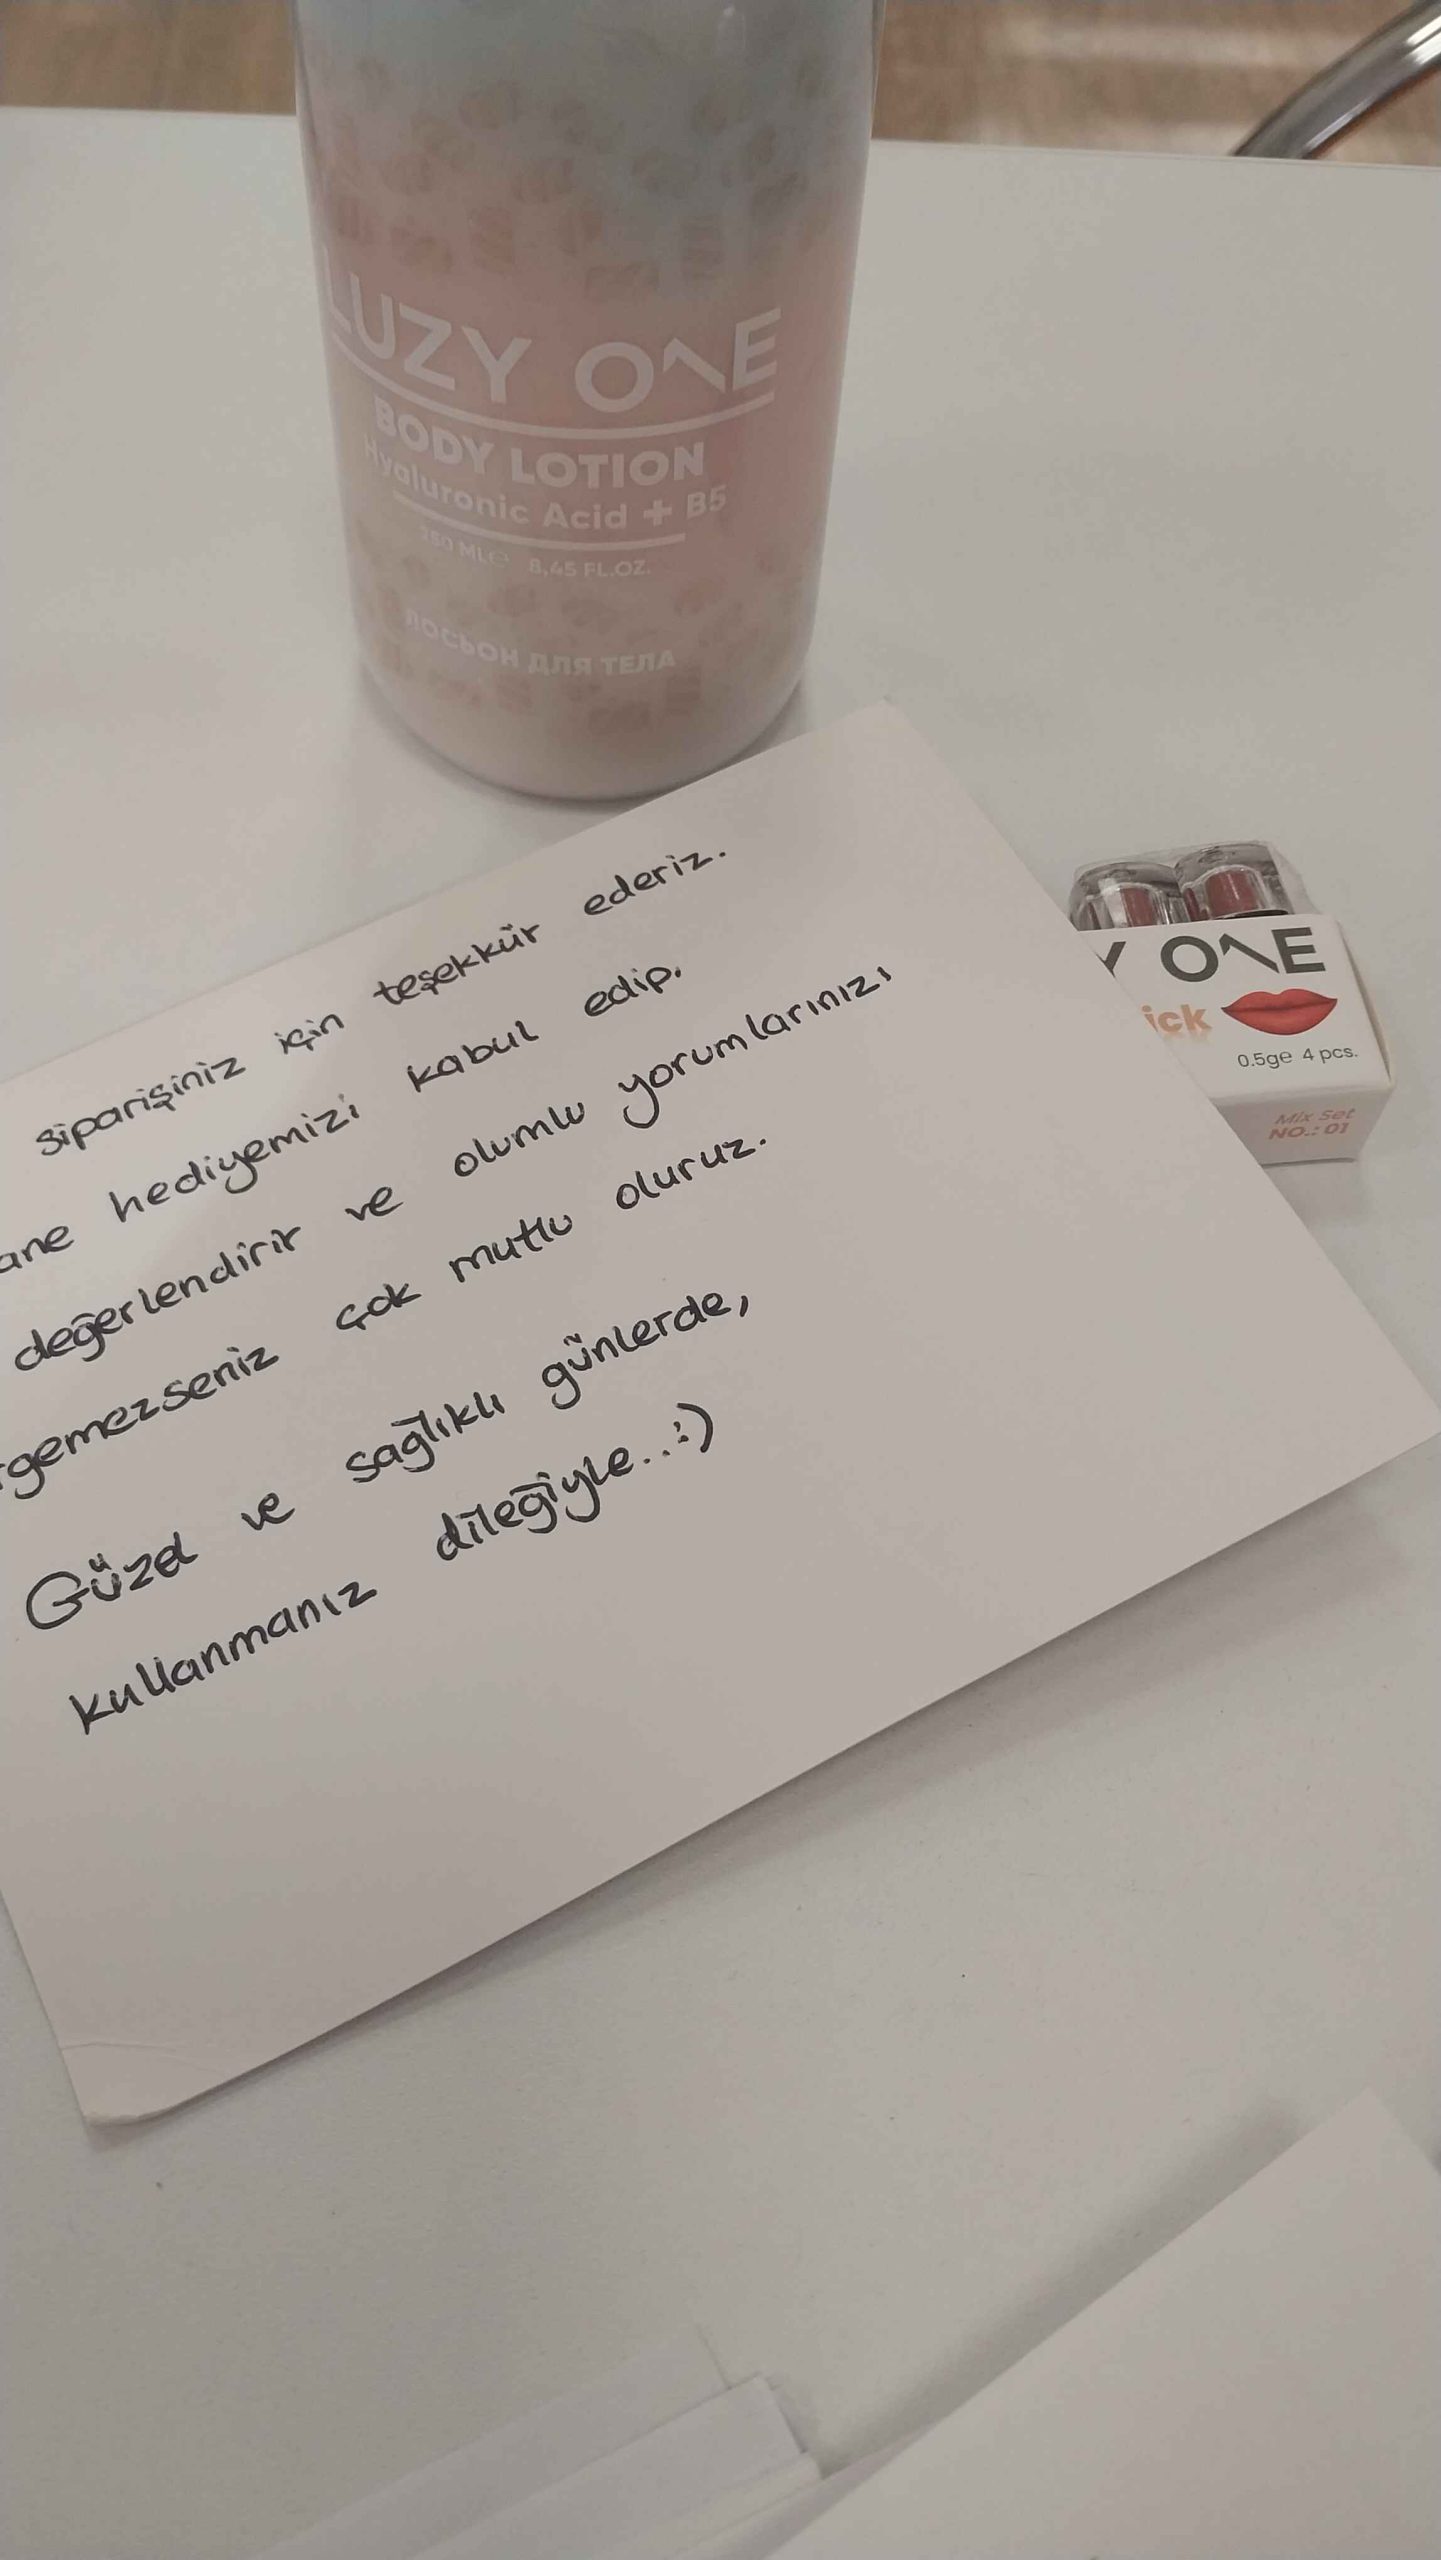 LUZY ONE
BODY LOTION
Hyaluronic Acid + B5
250 MLe 8,45 FL.OZ.
ЛОСЬОН ДЛЯ ТЕЛА
Y ONE
ick
0.5ge 4 pcs.
Mix Set
NO.: 01
siparişiniz için teşekkür ederiz.
ane hediyemizi kabul edip.
değerlendirir ve olumlu yorumlarınızı
rgemezseniz çok mutlu oluruz.
Güzel ve sağlıklı günlerde,
kullanmanız dileğiyle...:)